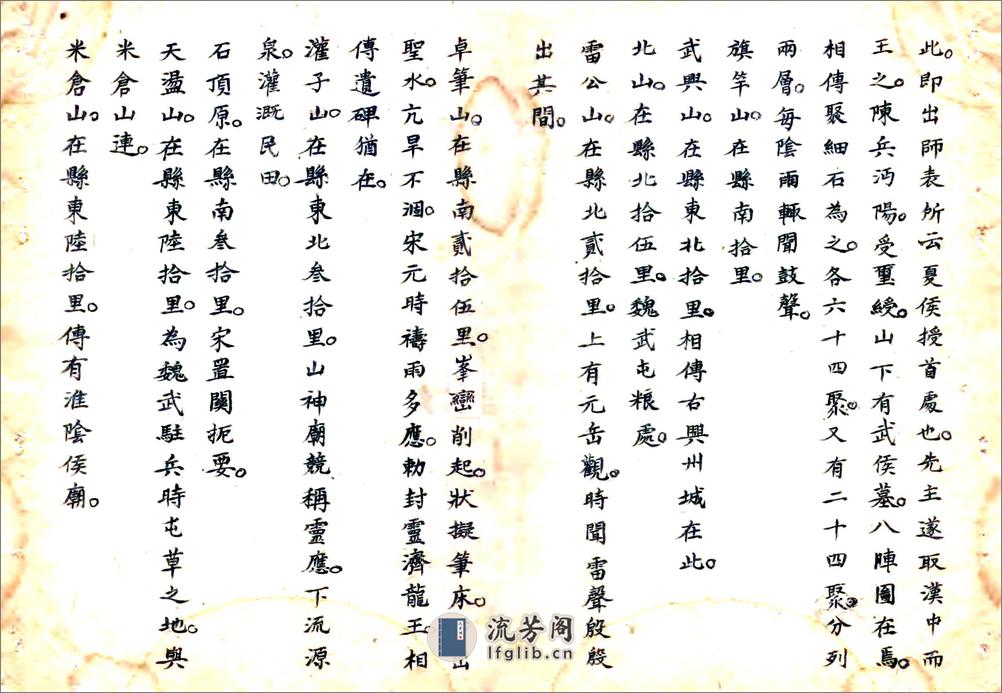 此。即出師表所云夏侯授首處也。先主遂取漢中而
王之。陳兵沔陽。受璽綬。山下有武侯墓。八陣圖在焉。
相傳聚細石為之。各六十四聚。又有二十四聚。分列
兩層。每陰雨輒聞鼓聲。
旗竿山。在縣南拾里。
武興山。在縣東北拾里。相傳右興州城在此。
北山。在縣北拾伍里。魏武屯粮處。
雷公山。在縣北貳拾里。上有元岳觀。時聞雷聲殷殷
出其間。
卓筆山。在縣南貳拾伍里。峯巒削起。狀擬筆床。山
聖水。亢旱不涸。宋元時禱雨多應。勅封靈濟龍王。相
傳遺碑猶在。
灌子山。在縣東北叁拾里。山神廟競稱靈應。下流源
泉。灌溉民田。
石頂原。在縣南叁拾里。宋置關扼要。
天盪山。在縣東陸拾里。為魏武駐兵時屯草之地。與
米倉山連。
米倉山。在縣東陸拾里。傳有淮陰侯廟。
流芳阁
lfglib.cn